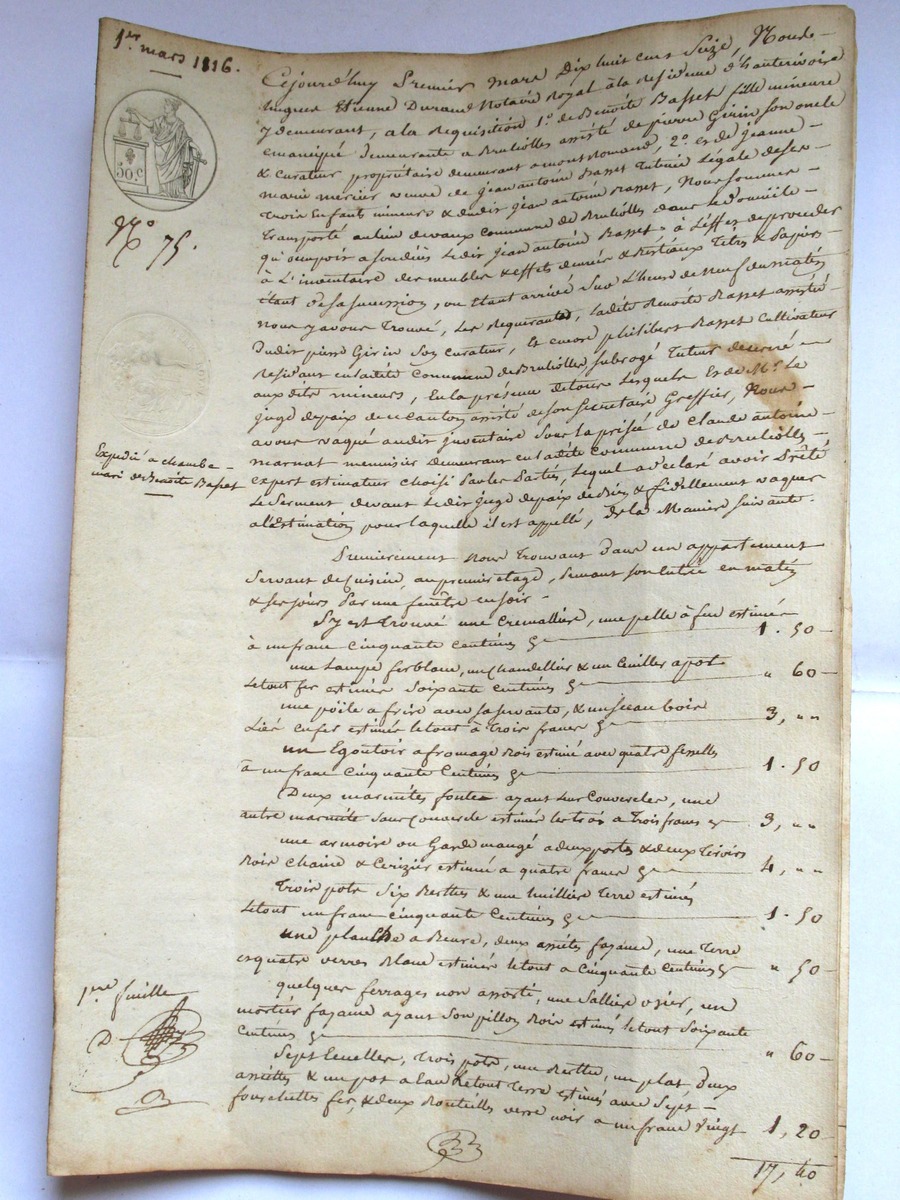 1er mars 1816.
50.c
No 75.
Expedié a chambe
mari de Benoite Basset
Cejourd'huy Premier mars Dix huit cent Seize, Nous
hugues Etienne Durand Notaire Royal à la Residence d'hauterivoire
y demeurant, a la Requisition 1o. de Benoite Basset fille mineure
emancipé demeurante a Brullioles assisté de pierre Girin son oncle
& curateur proprietaire demeurant a montromand, 2o. et de jeanne
marie mercier veuve de jean antoine Basset Tutrice Légale de ses
Trois Enfants mineurs & dudit jean antoine Basset, Nous sommes
Transporté au lieu devaux Commune de Brullioles dans le Domicile
qu'occupoit a son décès ledit jean antoine Basset à L'effet de proceder
à L'inventaire des meubles & effets denrées & Bestiaux Titres & Papiers
étant de sa succession, ou étant arrivé sur L'heure de Neuf du matin
nous y avons Trouvé, les Requerantes, ladite Benoite Basset assistée
dudit pierre Girin son curateur, Et encore philibert Basset Cultivateur
Residant en ladite Commune de Brullioles subrogé Tuteur decerné
aux dits mineurs, En la présence de tous lesquels Et de Mr. Le
juge de paix de ce canton assisté de son secretaire Greffier, Nous
avons vaqué audit inventaire sous la prisée de Claude antoine
marnat menuisier demeurant en ladite Commune de Brullioles
expert estimateur choisi par les Parties, lequel a déclaré avoir Prêté
Le Serment devant Ledit juge de paix de Bien & fidellement vaquer
a l'Estimation pour laquelle il est appellé, de la Maniere suivante.
Premierement Nous Trouvant dans un appartement
servant de Cuisine, au premier etage, prenant son entrée en matin
& ses jours par une fenêtre en soir
S'y est Trouvé une Cremalliere, une pelle à feu estimée
à un franc cinquante centimes 1.50
une Lampe ferblanc, un chandellier & un Cuiller a pot
le tout fer estimée soixante centimes " 60
une pöile a frire avec sa servante, & un seau bois
Lié en fer estimée le tout à Trois francs 3, " "
un Egoutoir a fromage Bois estimé avec quatre fesselles
à un franc Cinquante Centimes 1.50
Deux marmites fonte ayant leur Couvercles, une
autre marmite sans Couvercle estimée les trois a Trois francs 3, " "
une armoire ou Garde mangé a deux portes & deux Tiroirs
Bois chaine & Cerizier estimée à quatre francs 4, " "
Trois pots Six Berthes & une huillière Terre estimés
le tout un franc cinquante Centimes 1.50
une planche a Beure, deux assiétes fayance, une Terre
et quatre verres Blanc estimée le tout a Cinquante Centimes " 50
quelques ferrages non assorti, une Salliere ozier, un
mortier fayance ayant son pillon Bois estimés le tout Soixante
Centimes " 60
Sept Ecuelles, Trois pots, une Berthe, un plat Deux
assiéttes & un pot a l'eau le tout Terre estimés avec Sept
fourchettes fer & deux Bouteilles verre noir a un franc vingt 1,20
17,40
1ere feuille
D